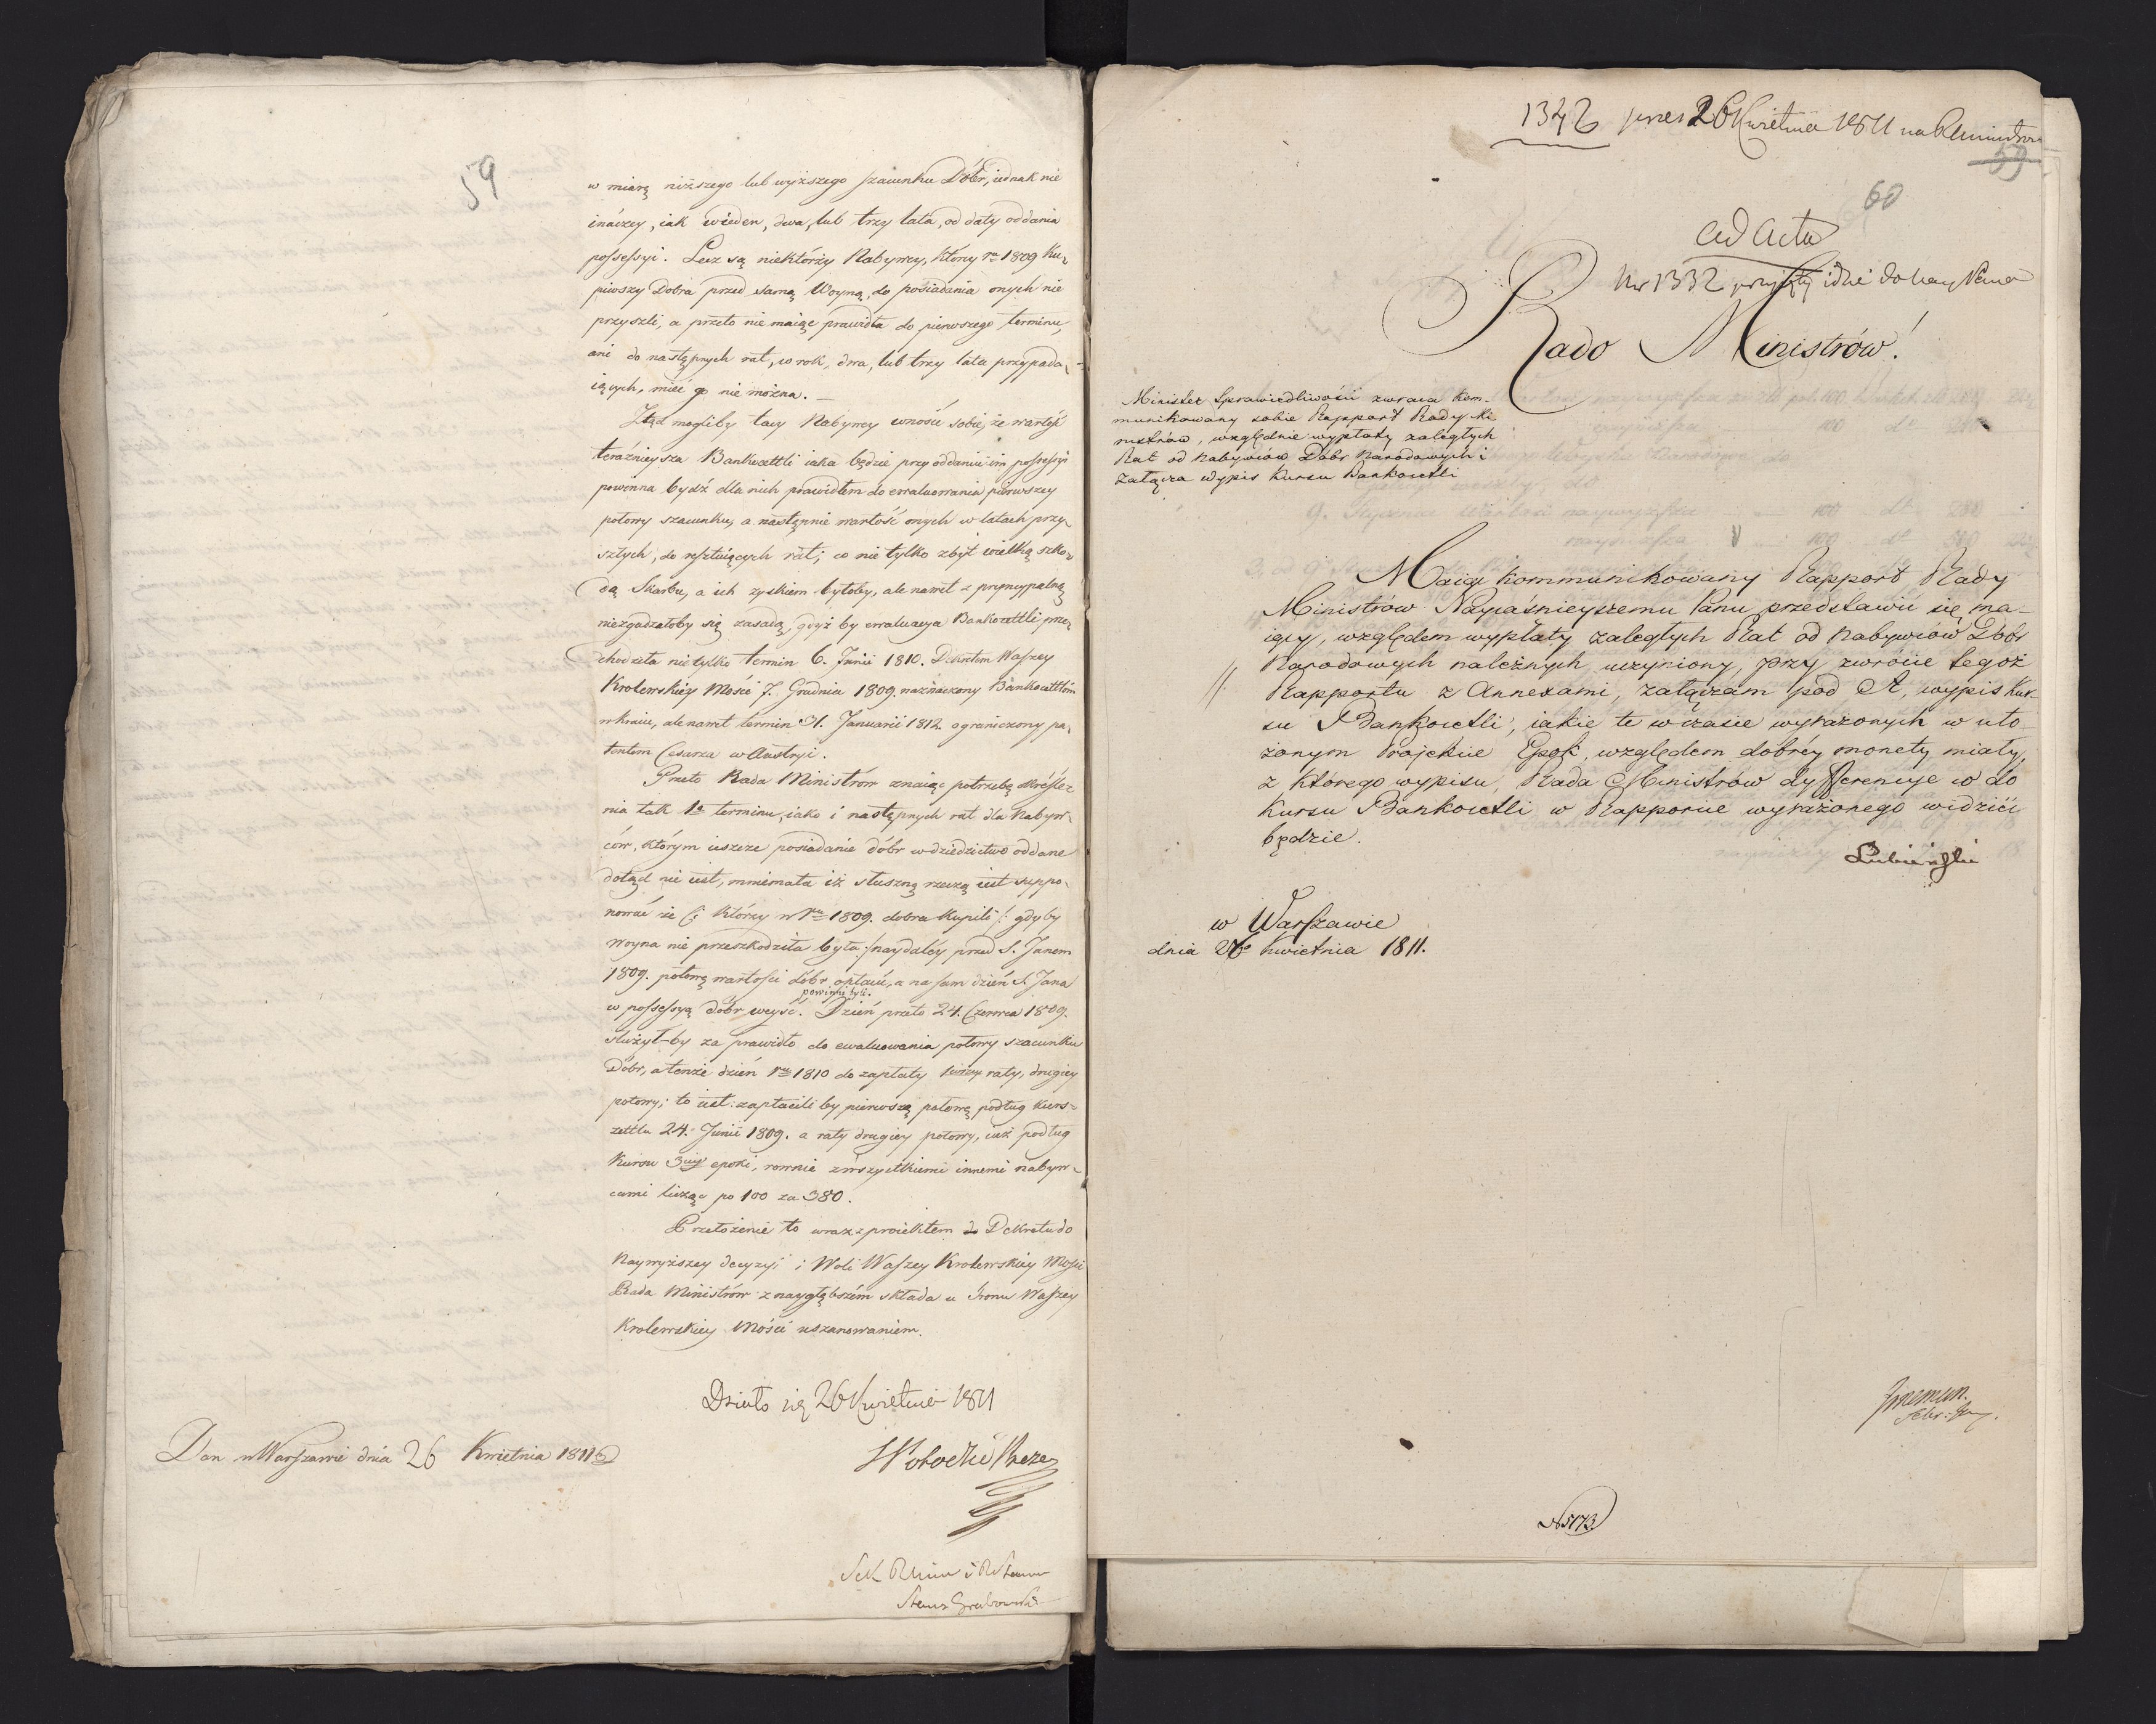 59
w miarę niższego lub wyższego szacunku Dóbr, iednak nie
ináczey, iak wieden, dwa, lub trzy lata, od daty oddania
possessyi. Lecz są niektórzy Nabywcy, którzy ru 1809 Ku-
piwszy Dobra przed samą Woyną, do posiadania onych nie
przyszli, a przeto nie maiąc prawidła do pierwszego terminu,
ani do następnych rat, w rok, dwa, lub trzy lata przypada-
iących, mieć go nie można.
Ztąd mogliby tacy Nabywcy wnosić sobie, że wartość
teráznieysza Bankocettli iaka będzie przy oddaniu im possessyi
powinna bydź dla nich prawidłem do ewaluowania pierwszey
połowy szacunku, a następnie wartość onych w latach przy-
szłych, do resztuiących rat; co nie tylko zbyt wielką szko-
dą Skarbu, a ich zyskiem byłoby, ale nawet z pryncypalną
niezgadzałoby się zasadą, gdyż by ewaluacya Bankocettli prze-
chodziła nie tylko termin 6. Junii 1810. Dekretem Waszey
Krolewskiey Mości 7. Grudnia 1809. naznaczony Bankocettlom
w kraiu, ale nawet termin 31. Januarii 1812. ograniczony pa-
tentem Cesarza w Austryi.
Przeto Rada Ministrów znaiąc potrzebę określe-
nia tak 1o terminu, iako i następnych rat dla Nabyw-
ców, którym ieszcze posiadanie dóbr w dziedzictwo oddane
dotąd nie iest, mniemała iż słuszną rzeczą iest suppo-
nować że /: którzy w Ru 1809. dobra kupili /: gdyby
woyna nie przeszkodziła była :/ naydaléy przed S. Janem
1809. połowę wartości dóbr opłacić, a na sam dzień S. Jana
powinni byli.
w possessyą dóbr weyść. Dzień przeto 24. Czerwca 1809.
służył-by za prawidło do ewaluowania połowy szacunku
Dóbr, a tenże dzień ru 1810 do zapłaty raty, drugiey
połowy; to iest: zapłacili by pierwszą połowę podług kurs-
zettlu 24. Junii 1809. a raty drugiey połowy, iuż podług
kursu 3ciey epoki, rownie z wszystkiemi innemi nabyw-
cami licząc po 100 za 380.
Przełożenie to wraz z proiektem do Dekretu do
Naywyższey decyzyi i Woli Waszey Krolewskiey Mości
Rada Ministrów z naygłębszém składa u tronu Waszey
Krolewskiey Mości uszanowaniem.
Działo się 26 Kwietnia 1811
Dan w Warszawie dnia 26 Kwietnia 1811
Sek
Grabowski
1342 prez 26 Kwietnia 1811 na
59
60
ad acta
Nr 1332 idzie do Nay Pana
Rado Ministrów!
Minister Sprawiedliwości zwraca kom-
munikowany sobie Rapport Rady Mi-
nistrów, względnie wypłaty zaległych
Rat od Nabywców Dóbr Narodowych i
załącza wypis kursu Bankocetli
Maiąc kommunikowany Rapport Rady
Ministrów Nayiaśnieyszemu Panu przedstawić się ma-
iący, względem wypłaty zaległych Rat od Nabywców Dóbr
Narodowych należnych uczyniony, przy zwrócie tegoż
Rapportu z Annexami, załączam pod A, wypis Kur-
su Bankocetli, iakie te w czasie wyrażonych w uło-
żonym Projekcie Epok, względem dobréy monety miały,
z którego wypisu, Rada Ministrów dyfferencye w do
Kursu Bankocetli w Rapporcie wyrażonego widzieć
będzie.
Lubieński
w Warszawie
dnia 26 kwietnia 1811.
N 5173